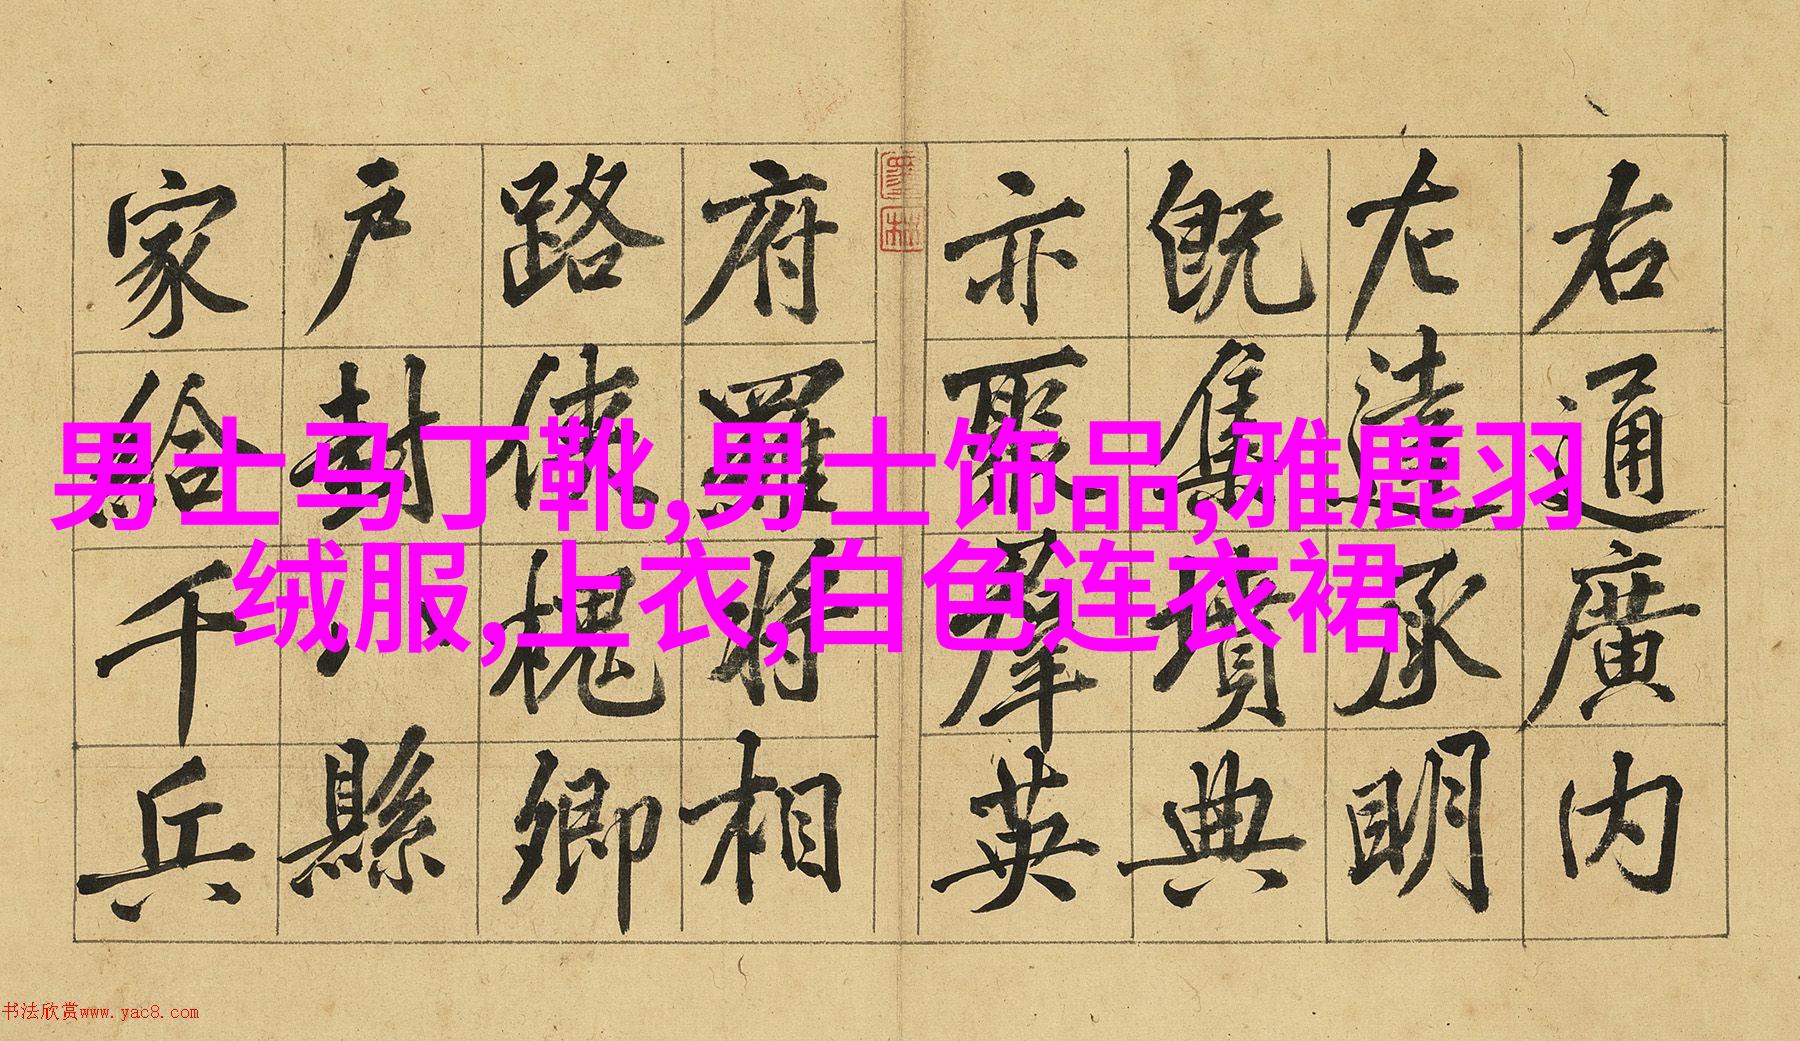 右通廣内
左達承明
既集墳典
亦聚羣英
府羅將相
路俠槐卿
户封八縣
家給千兵
男士马丁靴,男士饰品,雅鹿羽
绒服,上衣,白色连衣裙
书法欣赏www.yac8.com